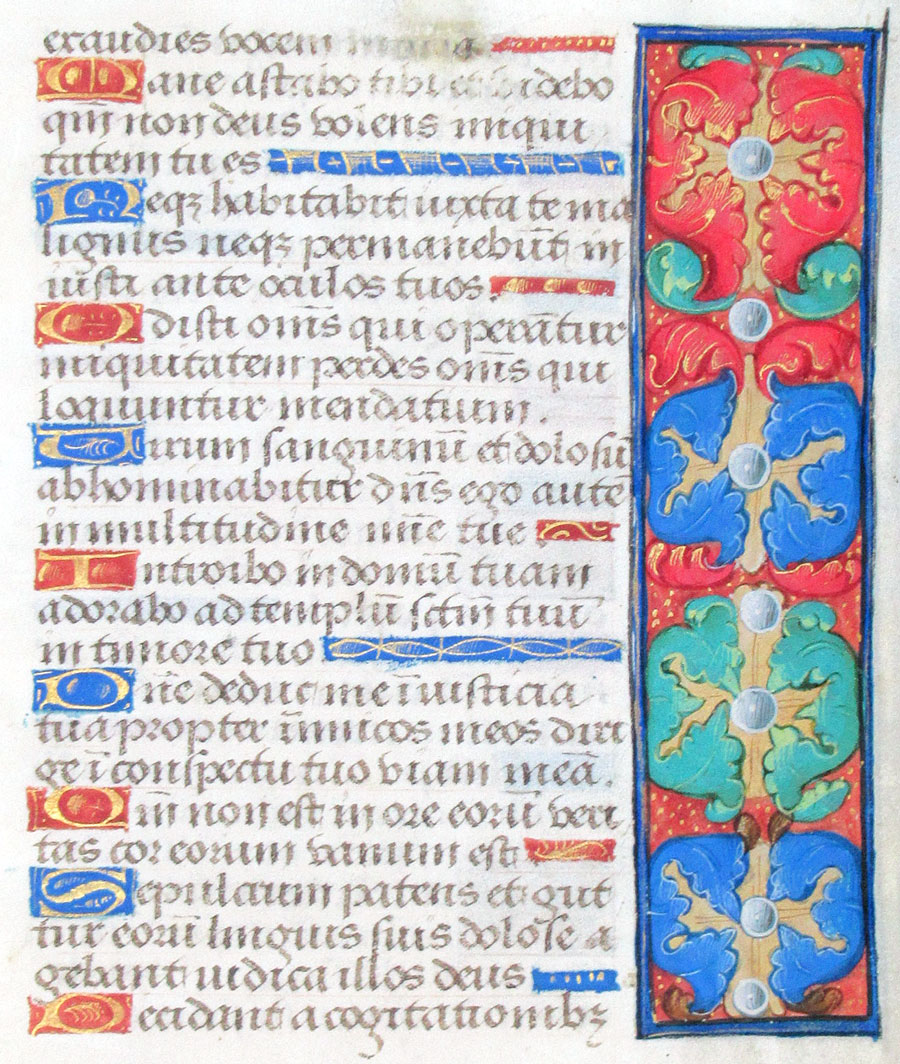 exaudies vocem
Mane astabo tibi et videbo
qm̄ non deus volens iniqui
tatem tu es
Neqꝫ habitabit iuxta te ma
lignus neqꝫ permanebūt in
iusti ante oculos tuos.
Odisti om̄s qui operātur
iniquitatem perdes om̄s qui
loquuntur mendatium.
Uirum sanguinū et dolosū
abhominabitur dn̄s ego autē
in multitudine mīe tue
Introibo in domū tuam
adorabo ad templū sctm̄ tuū
in timore tuo
Dn̄e deduc me ī iusticia
tua propter īimicos meos diri
ge ī conspectu tuo viam meā.
Qm̄ non est in ore eorū veri
tas cor eorum vanum est
Sepulcrum patens est gut
tur eorū linguis suis dolose a
gebant iudica illos deus
Decidant a cogitationibꝫ